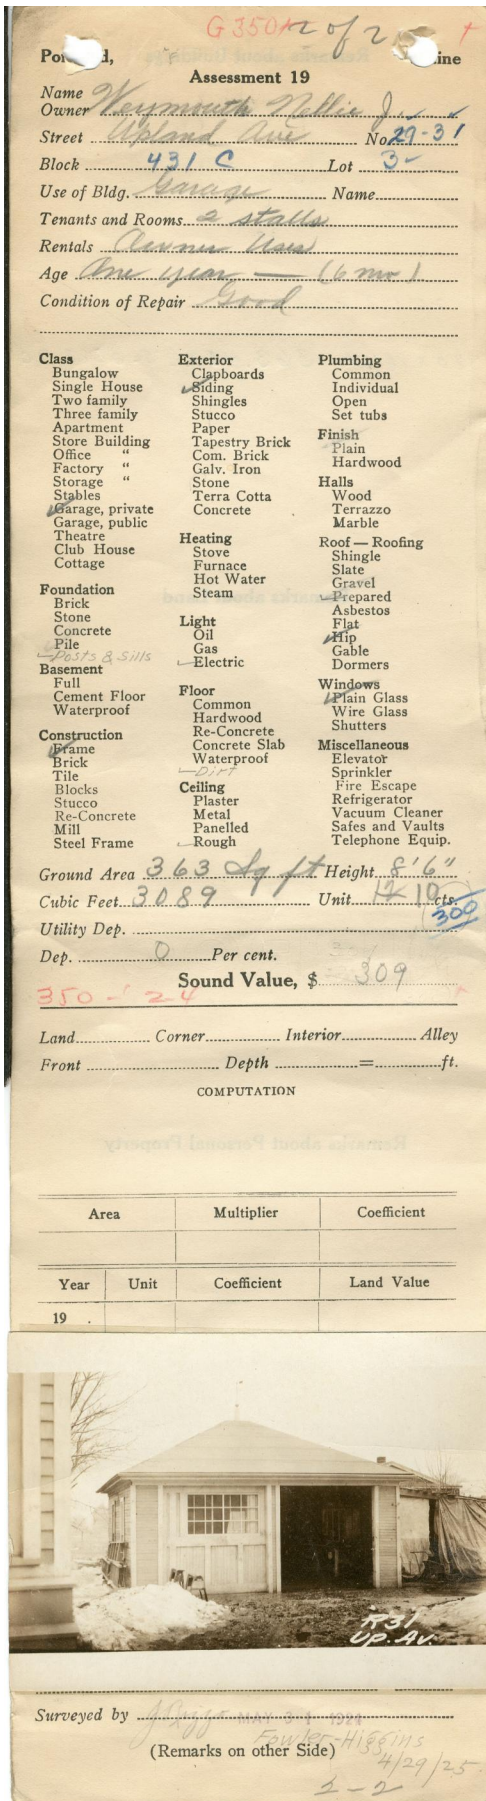 G 350 2 of 2
Po d, ine
Assessment 19
Name
Owner Weymouth Nellie J.
Street Upland Ave No. 29-31
Block 431 C Lot 3
Use of Bldg. Garage Name
Tenants and Rooms 2 stalls
Rentals Owner Uses
Age One year — (6 mo)
Condition of Repair Good
Class
Bungalow
Single House
Two family
Three family
Apartment
Store Building
Office "
Factory "
Storage "
Stables
Garage, private
Garage, public
Theatre
Club House
Cottage
Foundation
Brick
Stone
Concrete
Pile
Posts & Sills
Basement
Full
Cement Floor
Waterproof
Construction
Frame
Brick
Tile
Blocks
Stucco
Re-Concrete
Mill
Steel Frame
Exterior
Clapboards
Siding
Shingles
Stucco
Paper
Tapestry Brick
Com. Brick
Galv. Iron
Stone
Terra Cotta
Concrete
Heating
Stove
Furnace
Hot Water
Steam
Light
Oil
Gas
Electric
Floor
Common
Hardwood
Re-Concrete
Concrete Slab
Waterproof
Dirt
Ceiling
Plaster
Metal
Panelled
Rough
Plumbing
Common
Individual
Open
Set tubs
Finish
Plain
Hardwood
Halls
Wood
Terrazzo
Marble
Roof — Roofing
Shingle
Slate
Gravel
Prepared
Asbestos
Flat
Hip
Gable
Dormers
Windows
Plain Glass
Wire Glass
Shutters
Miscellaneous
Elevator
Sprinkler
Fire Escape
Refrigerator
Vacuum Cleaner
Safes and Vaults
Telephone Equip.
Ground Area 363 Sq ft Height 8'6"
Cubic Feet 3089 Unit 12 10 cts.
300
Utility Dep.
Dep. 0 Per cent.
Sound Value, $ 309
350 - '24
Land Corner Interior Alley
Front Depth = ft.
COMPUTATION
Area Multiplier Coefficient
Year Unit Coefficient Land Value
19 .
R31
UP. AV.
Surveyed by MAY 31 1924
Fowler-Higgins
(Remarks on other Side)
4/29/25
2-2